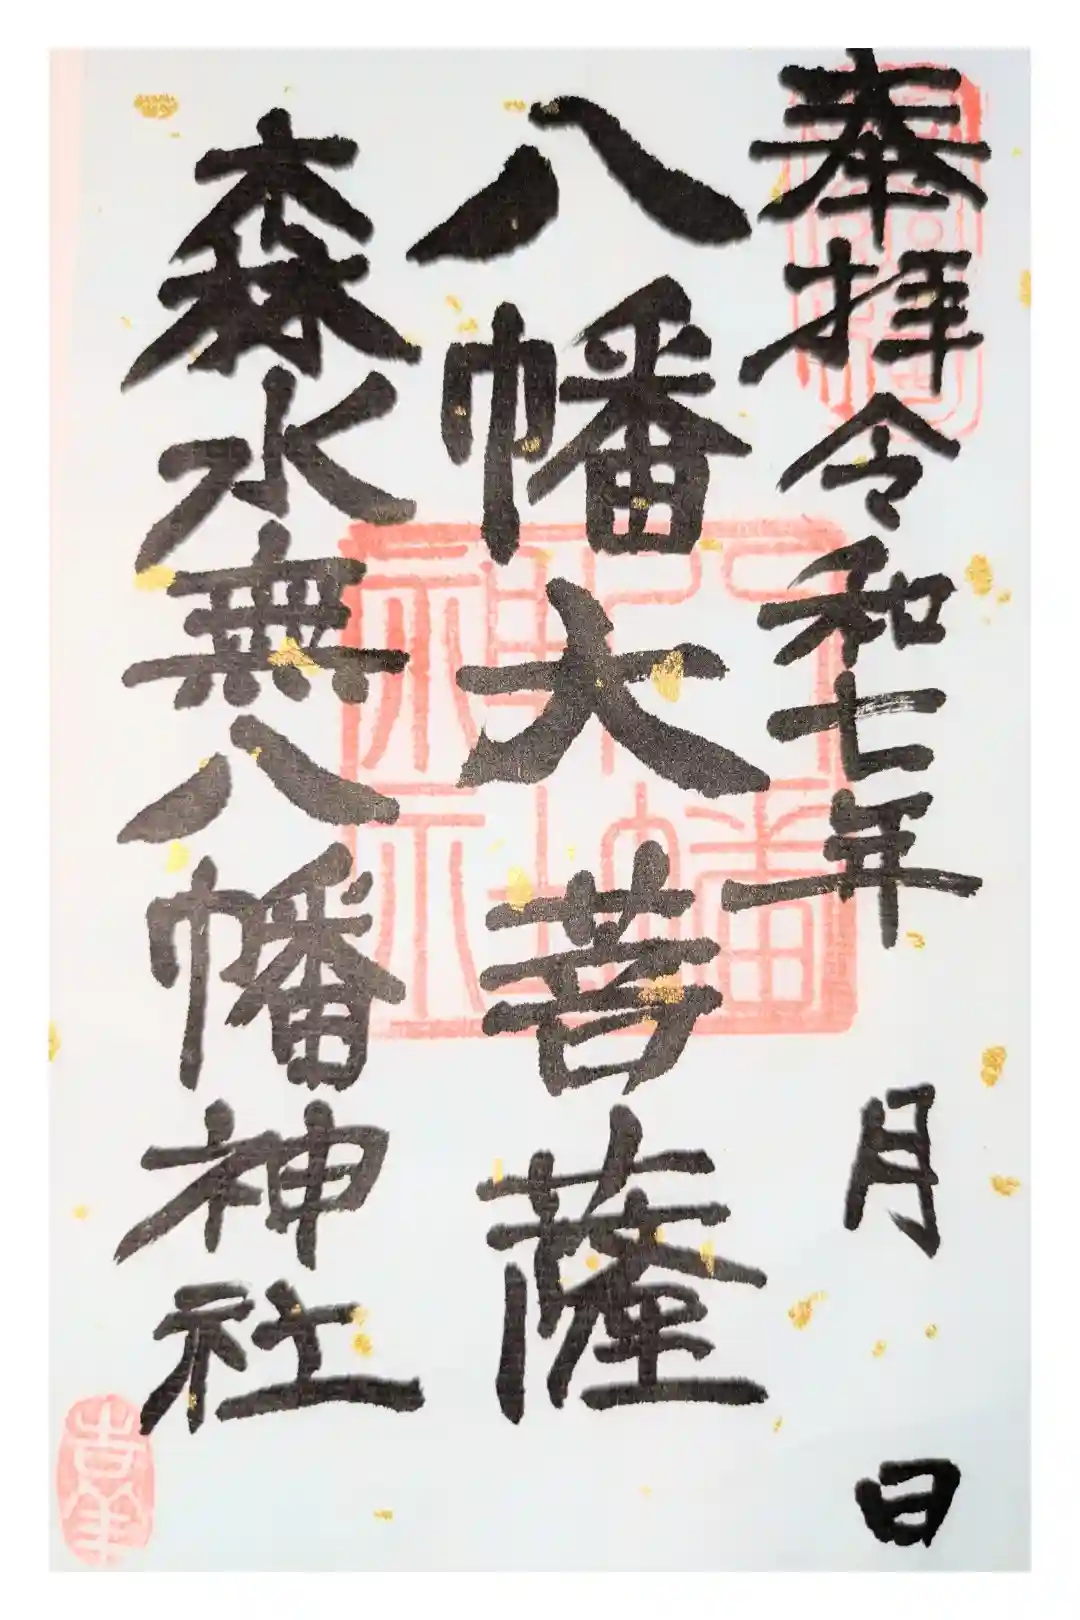 奉拝 令和七年 月 日
八幡大菩薩
森水無八幡神社
八幡神社